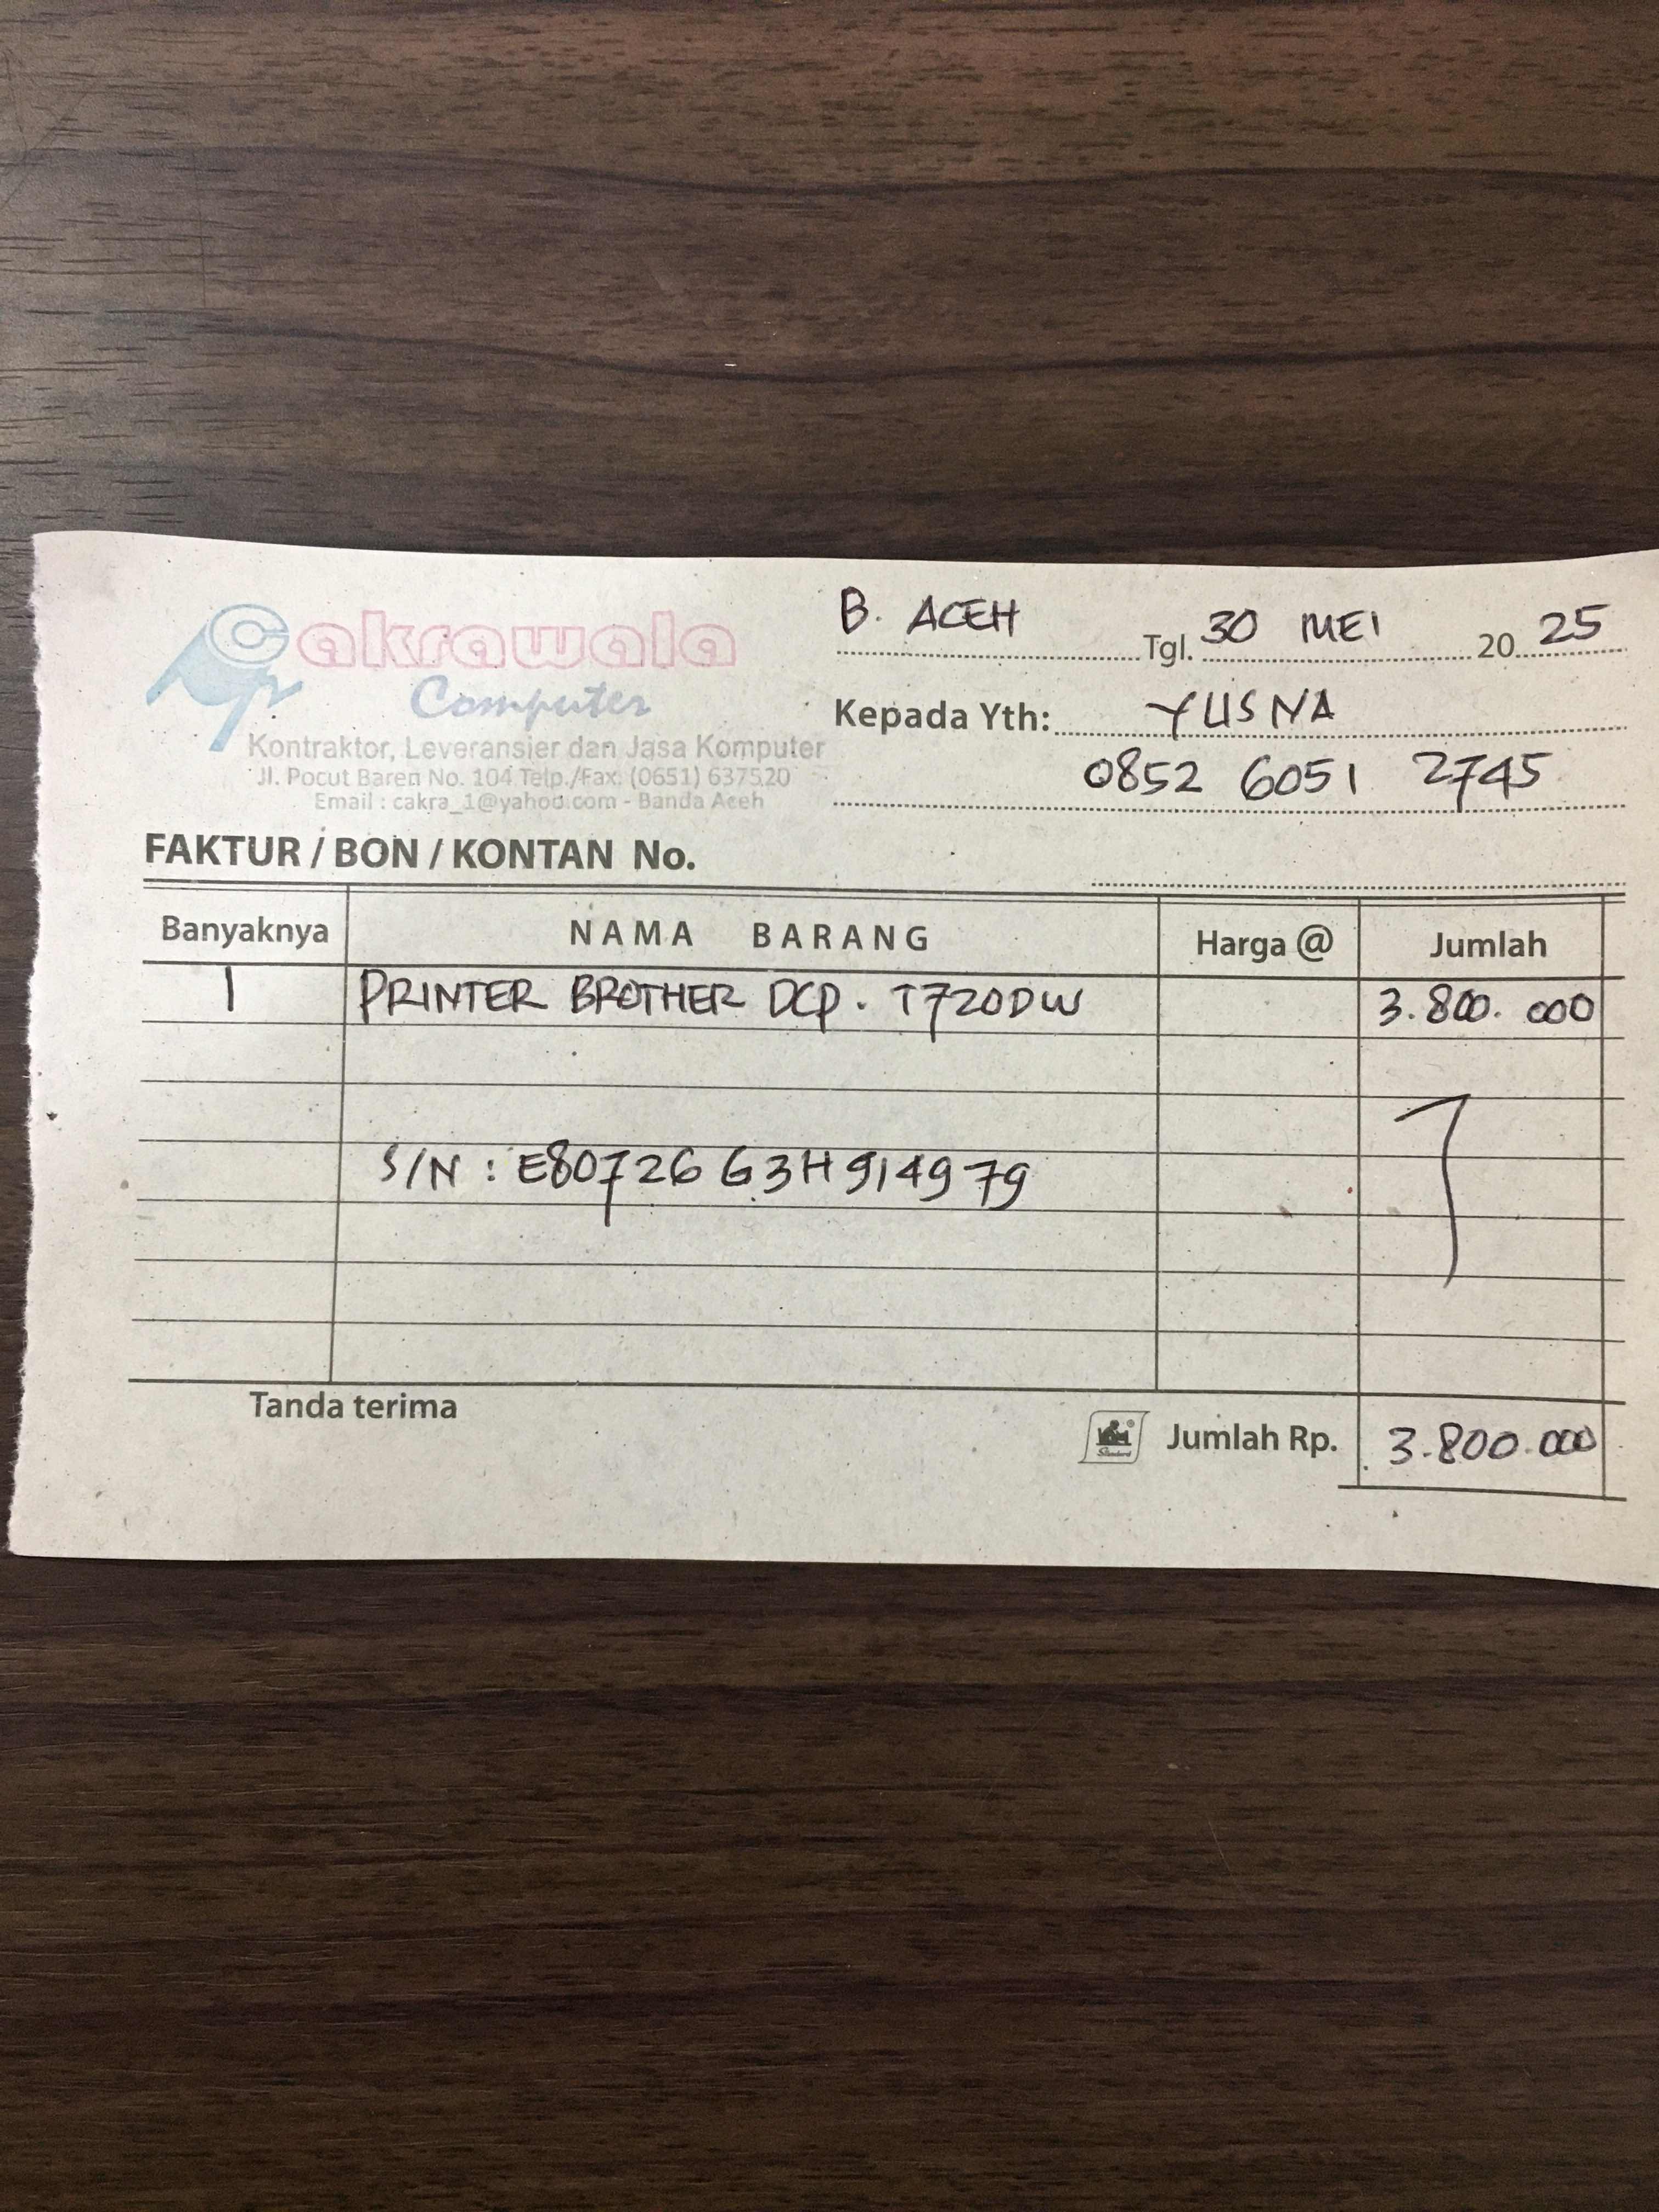 Cakrawala
Computer
Kontraktor, Leveransier dan Jasa Komputer
Jl. Pocut Baren No. 104 Telp./Fax. (0651) 637520
Email : cakra_1@yahoo.com - Banda Aceh
B. ACEH Tgl. 30 MEI 20 25
Kepada Yth: YUSNA
0852 6051 2745
FAKTUR / BON / KONTAN No.
Banyaknya NAMA BARANG Harga @ Jumlah
1 PRINTER BROTHER DCP. T720DW 3.800.000
S/N : E80726G3H914979
Tanda terima
Standard
Jumlah Rp. 3.800.000